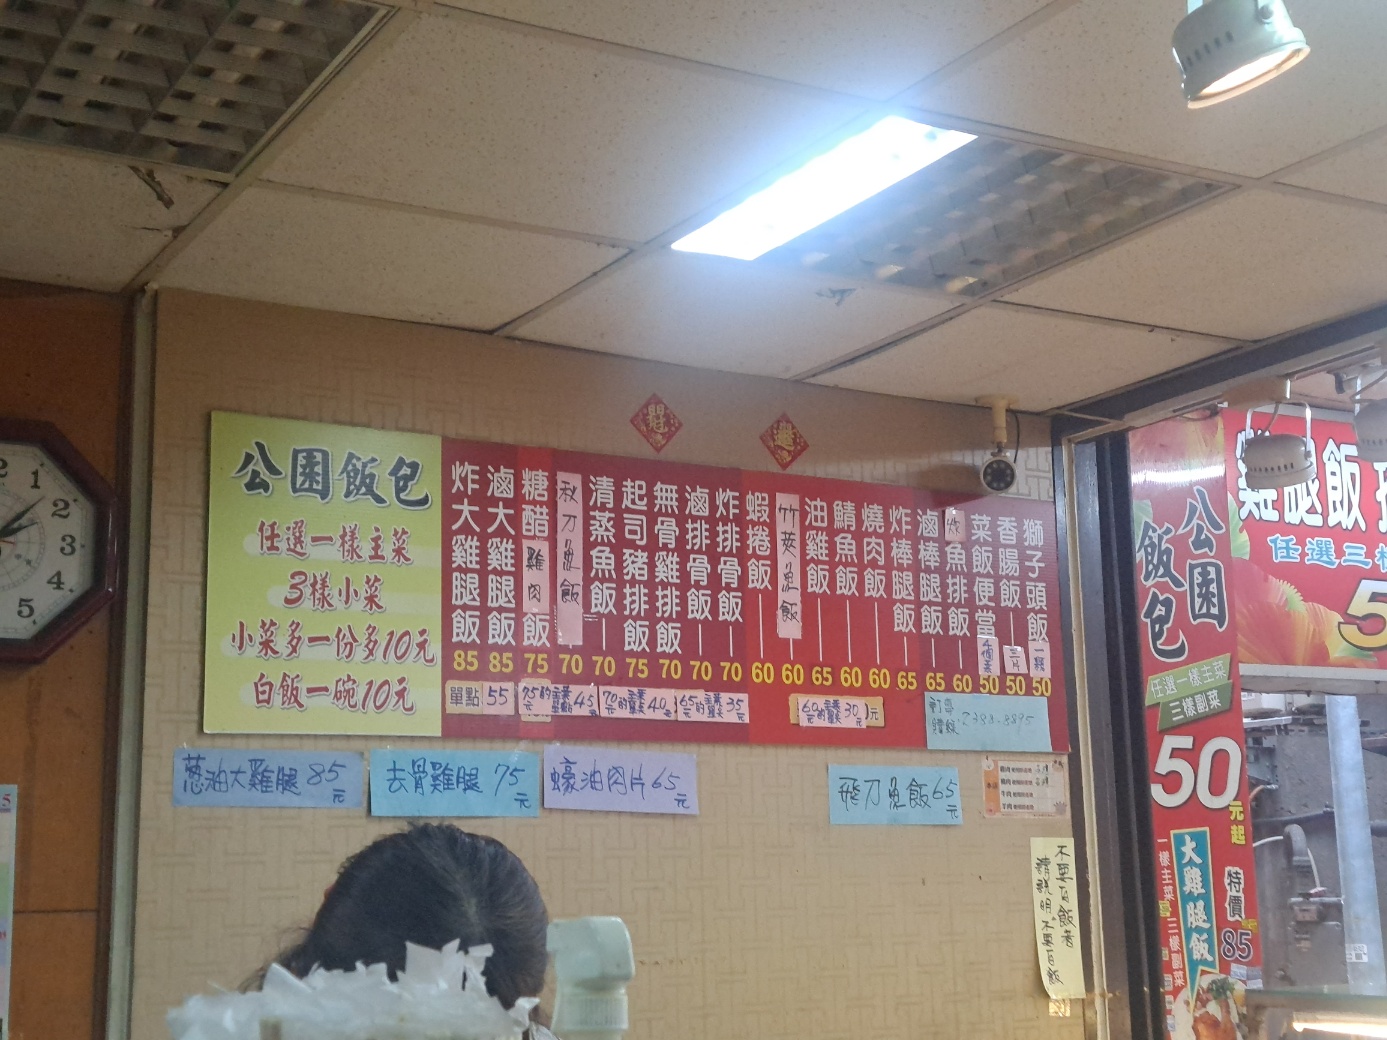 公園飯包
任選一樣主菜
3樣小菜
小菜多一份多10元
白飯一碗10元
炸大雞腿飯 85
滷大雞腿飯 85
糖醋雞肉飯 75
秋刀魚飯 70
清蒸魚飯 70
起司豬排飯 75
無骨雞排飯 70
滷排骨飯 70
炸排骨飯 70
蝦捲飯 60
竹筴魚飯 60
油雞飯 65
鯖魚飯 60
燒肉飯 60
炸棒腿飯 65
滷棒腿飯 65
炸魚排飯 60
菜飯便當 50
香腸飯 三片 50
獅子頭飯 一顆 50
單點55
75元的主菜單點45元
70元的主菜單點40元
65元的主菜單點35元
60元的主菜單點30元
2383-8895
蔥油大雞腿85元
去骨雞腿75元
蠔油肉片65元
飛刀魚飯65元
不要白飯者
請說明"不要白飯"
公園飯包
任選一樣主菜
三樣副菜
50元起
大雞腿飯
特價85
一樣主菜 三樣副菜
雞腿飯
任選三
5
1
2
3
4
5